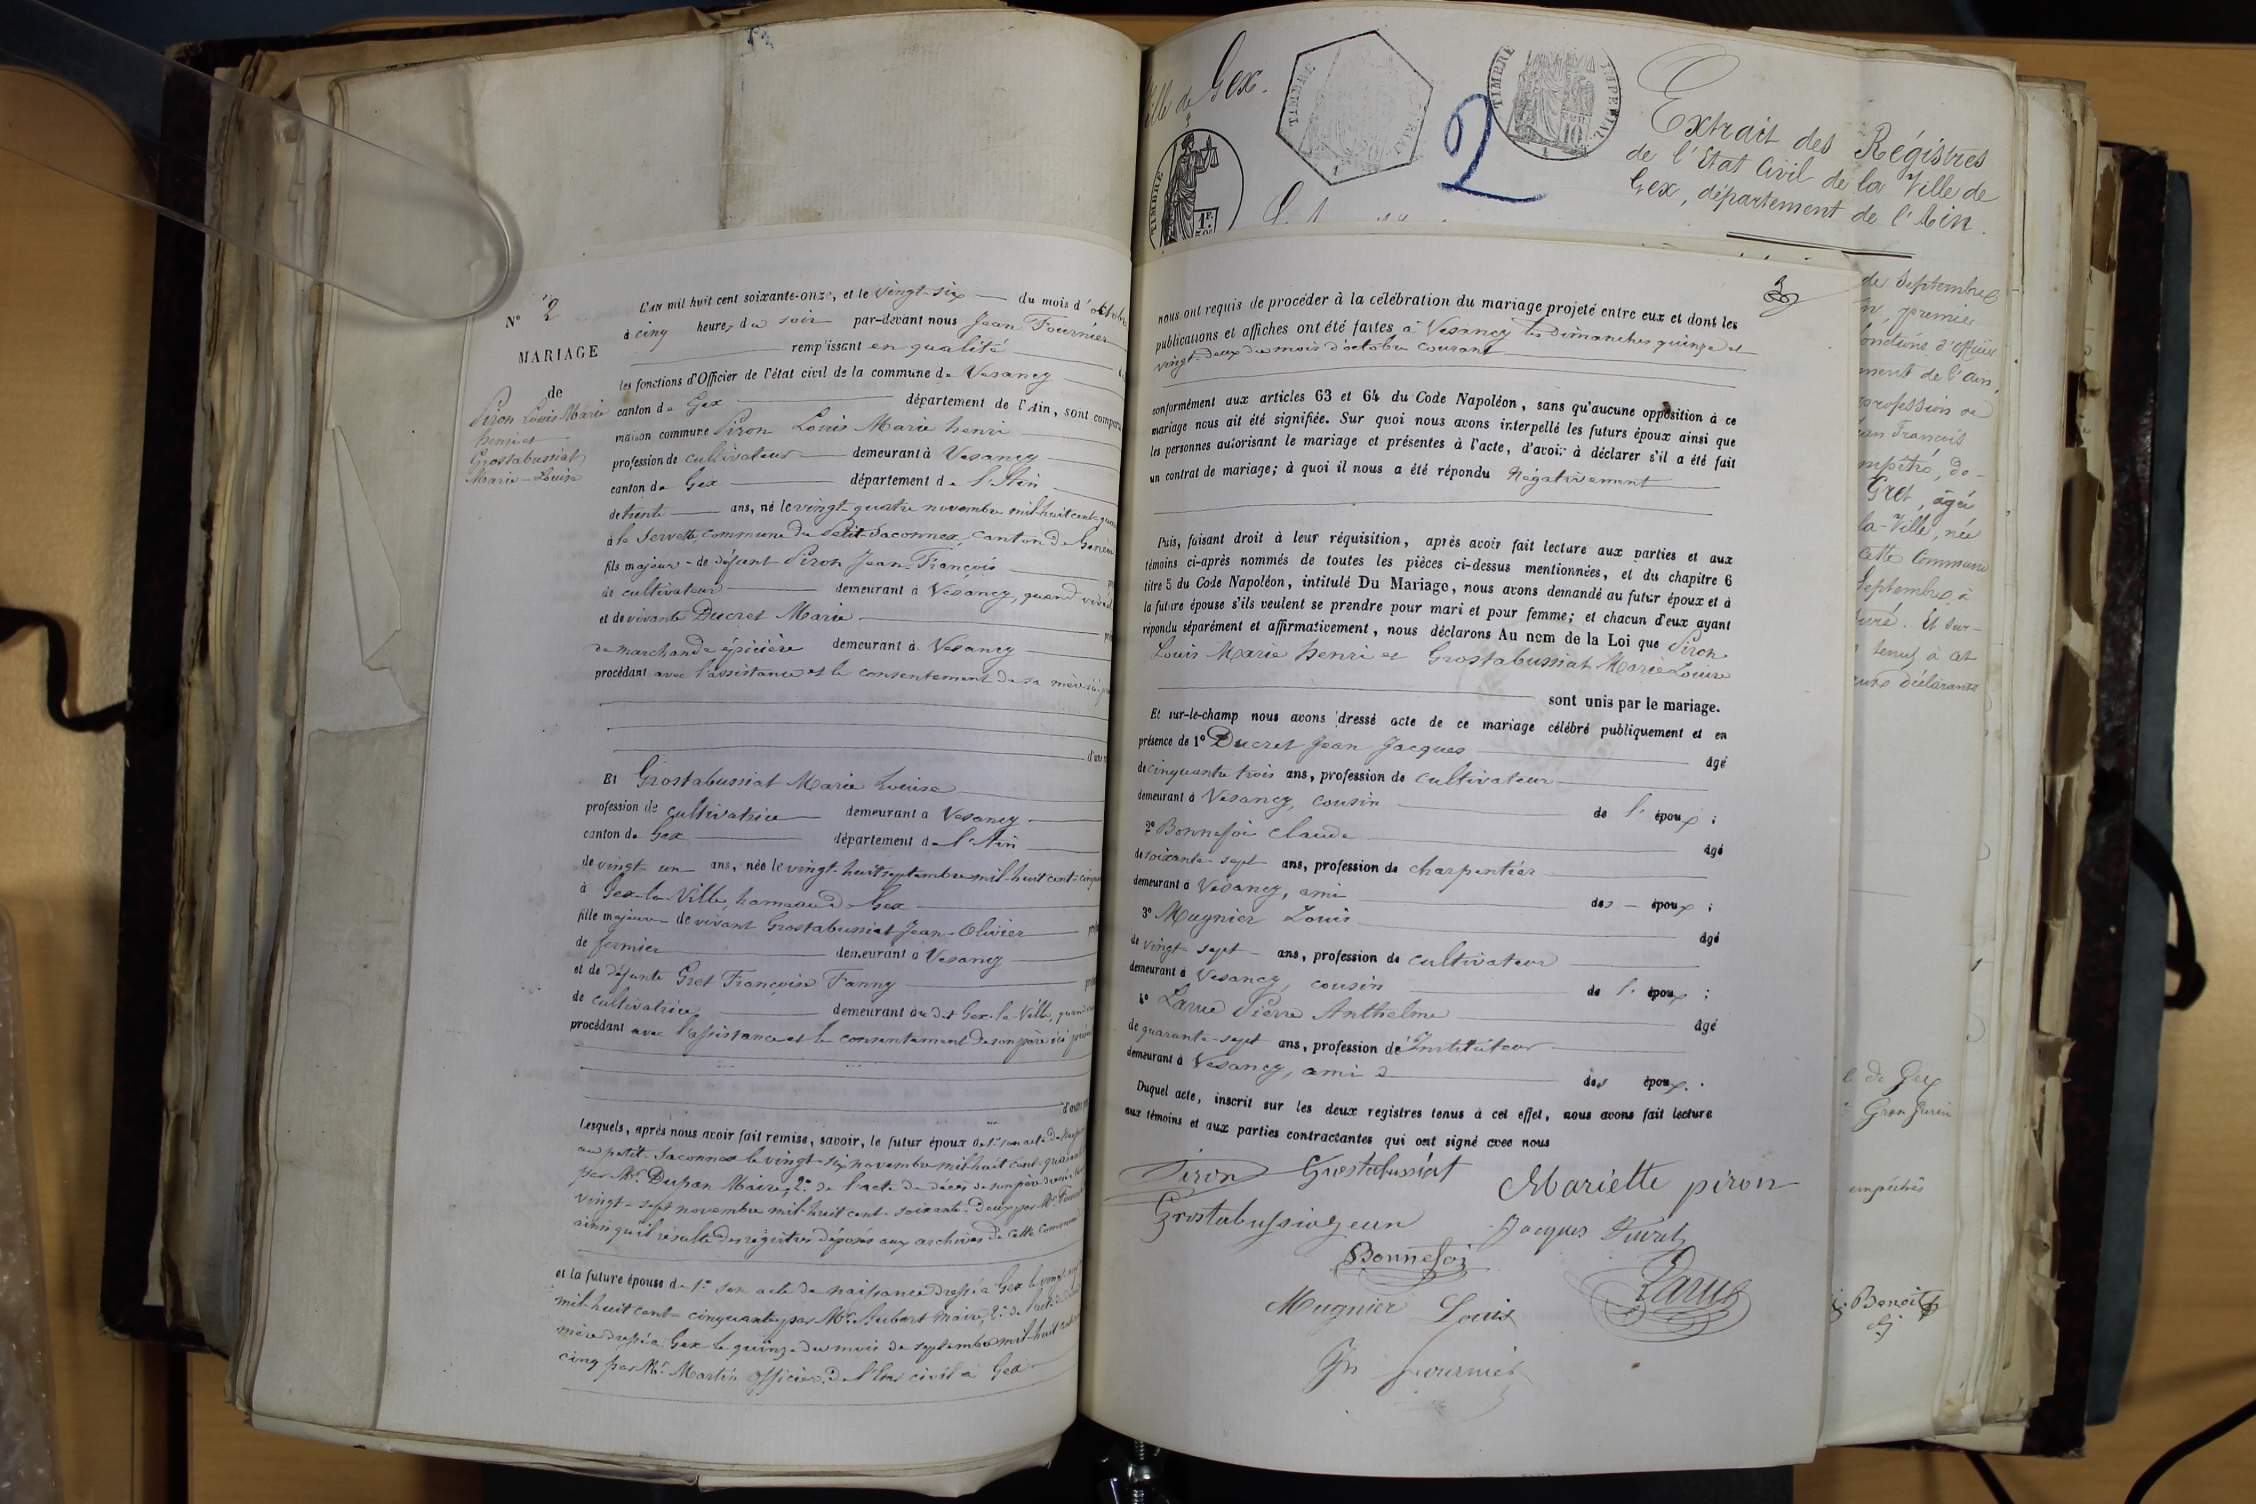 N° 2
MARIAGE
de
Piron Louis Marie
henri et
Grostabussiat
Marie-Louise
L'an mil huit cent soixante-onze, et le vingt-six du mois d'octobre
à cinq heures du soir par-devant nous Jean Fournier
remplissant en qualité
les fonctions d'Officier de l'état civil de la commune de Vesancy
canton de Gex département de l'Ain, sont comparu
maison commune Piron Louis Marie henri
profession de cultivateur demeurant à Vesancy
canton de Gex département de l'Ain
de trente ans, né le vingt-quatre novembre mil-huit-cent-qua
à la Servette, commune du Petit-Saconnex, canton de Genève
fils majeur de défunt Piron Jean-François
de cultivateur demeurant à Vesancy, quand vivait
et de vivante Ducret Marie
de marchande épicière demeurant à Vesancy
procédant avec l'assistance et le consentement de sa mère ici
d'une
Et Grostabussiat Marie Louise
profession de cultivatrice demeurant à Vesancy
canton de Gex département de l'Ain
de vingt un ans, née le vingt-huit septembre mil-huit-cent-cinqua
à Gex-la-Ville, hameau de Gex
fille majeure de vivant Grostabussiat Jean-Olivier
de fermier demeurant à Vesancy
et de défunte Gret Françoise Fanny
de cultivatrice demeurant au dit Gex-la-Ville, quand
procédant avec l'assistance et le consentement de son père ici
d'autre
Lesquels, après nous avoir fait remise, savoir, le futur époux de 1° son acte de
au petit-Saconnex le vingt-six novembre mil-huit-cent-quarante
par Mr Dupan Maire, 2° de l'acte de décès de son père dressé
vingt-sept novembre mil-huit-cent-soixante-deux par Mr
ainsi qu'il résulte des registres déposés aux archives de cette commune
et la future épouse de 1° son acte de naissance dressé à Gex le vingt
mil-huit-cent-cinquante par Mr Aubert Maire, 2° de l'acte de
mère dressé à Gex le quinze du mois de septembre mil-huit
cinq par Mr Martin officier de l'Etat civil à Gex
Ville de Gex.
TIMBRE
TIMBRE
TIMBRE IMPERIAL
1F.
10
2
Extrait des Régistres
de l'Etat Civil de la Ville de
Gex, département de l'Ain.
nous ont requis de procéder à la célébration du mariage projeté entre eux et dont les
publications et affiches ont été faites à Vesancy les Dimanches quinze et
vingt-deux du mois d'octobre courant
conformément aux articles 63 et 64 du Code Napoléon, sans qu'aucune opposition à ce
mariage nous ait été signifiée. Sur quoi nous avons interpellé les futurs époux ainsi que
les personnes autorisant le mariage et présentes à l'acte, d'avoir à déclarer s'il a été fait
un contrat de mariage; à quoi il nous a été répondu Négativement
Puis, faisant droit à leur réquisition, après avoir fait lecture aux parties et aux
témoins ci-après nommés de toutes les pièces ci-dessus mentionnées, et du chapitre 6
titre 5 du Code Napoléon, intitulé Du Mariage, nous avons demandé au futur époux et à
la future épouse s'ils veulent se prendre pour mari et pour femme; et chacun d'eux ayant
répondu séparément et affirmativement, nous déclarons Au nom de la Loi que Piron
Louis Marie henri et Grostabussiat Marie Louise
sont unis par le mariage.
Et sur-le-champ nous avons dressé acte de ce mariage célébré publiquement et en
présence de 1° Ducret Jean Jacques âgé
de cinquante trois ans, profession de cultivateur
demeurant à Vesancy, cousin de l'époux ;
2° Bonnefoi Claude âgé
de soixante-sept ans, profession de charpentier
demeurant à Vesancy, ami des époux ;
3° Mugnier Louis âgé
de vingt sept ans, profession de cultivateur
demeurant à Vesancy, cousin de l'époux ;
4° Larue Pierre Anthelme âgé
de quarante-sept ans, profession d'Instituteur
demeurant à Vesancy, ami des époux.
Duquel acte, inscrit sur les deux registres tenus à cet effet, nous avons fait lecture
aux témoins et aux parties contractantes qui ont signé avec nous
Piron Grostabussiat
Mariette piron
Bonnefoi
Larue
Mugnier Louis
Jn fournier
de Septembre
premier
fonctions d'officier
ment de l'ain,
profession de
ean François
Gret, âgée
la-Ville, née
Cette Commune
Septembre à
Et sur-
tenus à cet
déclarants
de Gex
empêchés
Benoit